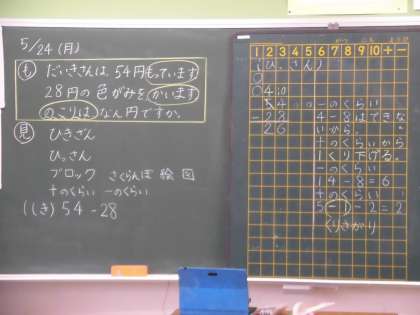 5/24(月)
も だいきさんは、54円もっています
28円の色がみを、かいます
のこりはなん円ですか。
見 ひきざん
ひっさん
ブロック さくらんぼ 絵 図
十のくらい 一のくらい
(しき) 54-28
1 2 3 4 5 6 7 8 9 10 + -
(ひっさん)
54 一のくらい
-28 4-8はできな
26 いから。
十のくらいから
1くり下げる。
一のくらい
14-8=6
十のくらい
5-1-2=2
くりさがり